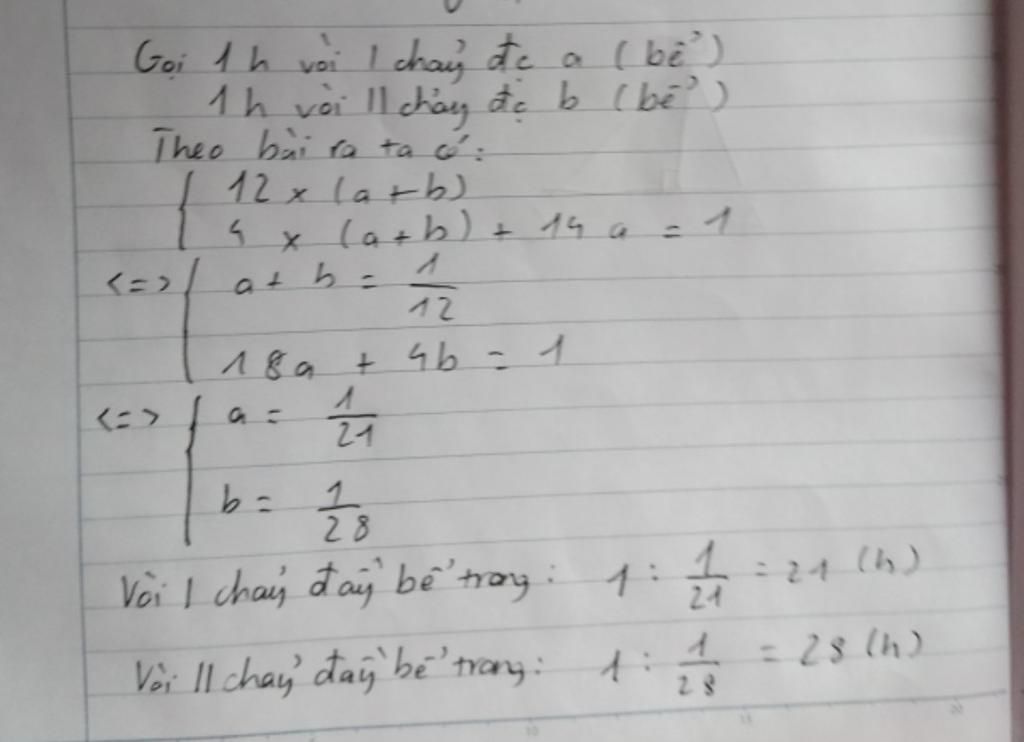 Gọi 1h vòi I chảy đc a (bể)
1h vòi II chảy đc b (bể)
Theo bài ra ta có:
12 x (a+b)
4 x (a+b) + 14a = 1
<=> a + b = 1/12
18a + 4b = 1
<=> a = 1/21
b = 1/28
Vòi I chảy đầy bể trong: 1 : 1/21 = 21 (h)
Vòi II chảy đầy bể trong: 1 : 1/28 = 28 (h)
10 15 20